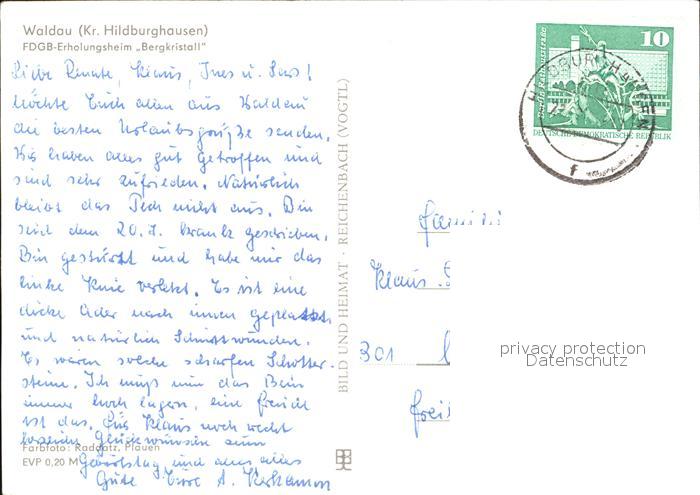 Waldau (Kr. Hildburghausen)
FDGB-Erholungsheim „Bergkristall"
Liebe Renate, Klaus, Ines u. Lars!
Möchte Euch allen aus Waldau
die besten Urlaubsgrüße senden.
Wir haben alles gut getroffen und
sind sehr zufrieden. Natürlich
bleibt das Pech nicht aus. Bin
seid dem 20.7. krank geschrieben.
Bin gestürzt und habe mir das
linke Knie verletzt. Es ist eine
dicke Ader nach innen geplatzt
und natürlich Schnittwunden.
Es waren solche scharfen Schotter-
steine. Ich muß nun das Bein
immer hoch lagern, eine Freude
ist das. Für Klaus noch recht
herzliche Glückwünsche zum
Farbfoto: Raddatz, Plauen
EVP 0,20 M
Geburtstag und alles alles
Gute Eure
BILD UND HEIMAT · REICHENBACH (VOGTL)
10
DEUTSCHE DEMOKRATISCHE REPUBLIK
f
Klaus
301
privacy protection
Datenschutz